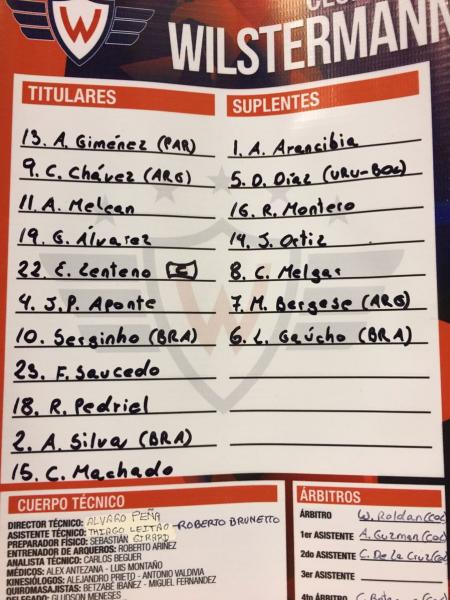 CLUB
WILSTERMANN
TITULARES
13. A. Giménez (PAR)
9. C. Chávez (ARG)
11. A. Melean
19. G. Álvarez
22. E. Zenteno (C)
4. J.P. Aponte
10. Serginho (BRA)
23. F. Saucedo
18. R. Pedriel
2. A. Silva (BRA)
15. C. Machado
SUPLENTES
1. A. Arancibia
5. D. Díaz (URU-BOL)
16. R. Montero
14. J. Ortiz
8. C. Melgar
7. M. Bergese (ARG)
6. L. Gaúcho (BRA)
CUERPO TÉCNICO
DIRECTOR TÉCNICO: ALVARO PEÑA
ASISTENTE TÉCNICO: THIAGO LEITÃO - ROBERTO BRUNETTO
PREPARADOR FÍSICO: SEBASTIÁN GIRARDI
ENTRENADOR DE ARQUEROS: ROBERTO ARIÑEZ
ANALISTA TÉCNICO: CARLOS BEGUER
MÉDICOS: ALEX ANTEZANA - LUIS MONTAÑO
KINESIÓLOGOS: ALEJANDRO PRIETO - ANTONIO VALDIVIA
QUIROMASAJISTAS: BETZABE IBAÑEZ - MIGUEL FERNANDEZ
DELEGADO: GLUDSON MENESES
ÁRBITROS
ÁRBITRO W. Roldan (COL)
1er ASISTENTE A. Guzman (COL)
2do ASISTENTE C. De La Cruz (COL)
3er ASISTENTE
4th ÁRBITRO C.